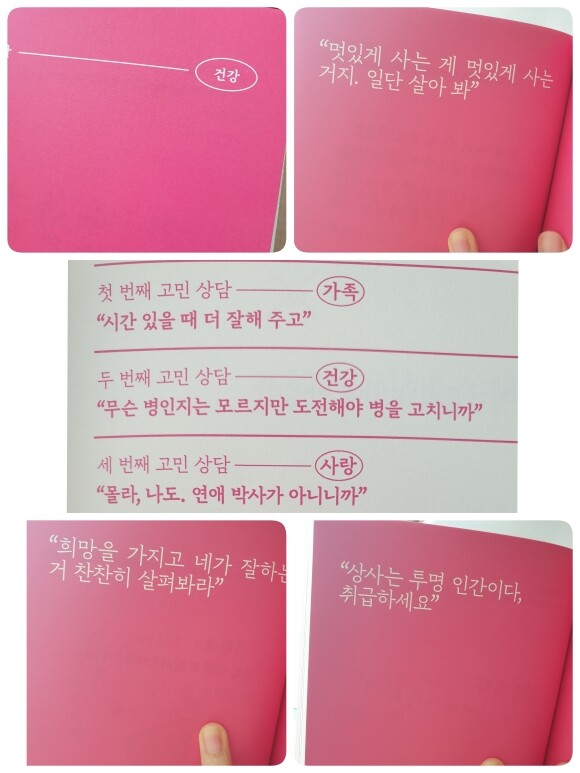 건강
“멋있게 사는 게 멋있게 사는
거지. 일단 살아 봐”
첫 번째 고민 상담 가족
“시간 있을 때 더 잘해 주고”
두 번째 고민 상담 건강
“무슨 병인지는 모르지만 도전해야 병을 고치니까”
세 번째 고민 상담 사랑
“몰라, 나도. 연애 박사가 아니니까”
“희망을 가지고 네가 잘하는
거 찬찬히 살펴봐라”
“상사는 투명 인간이다,
취급하세요”